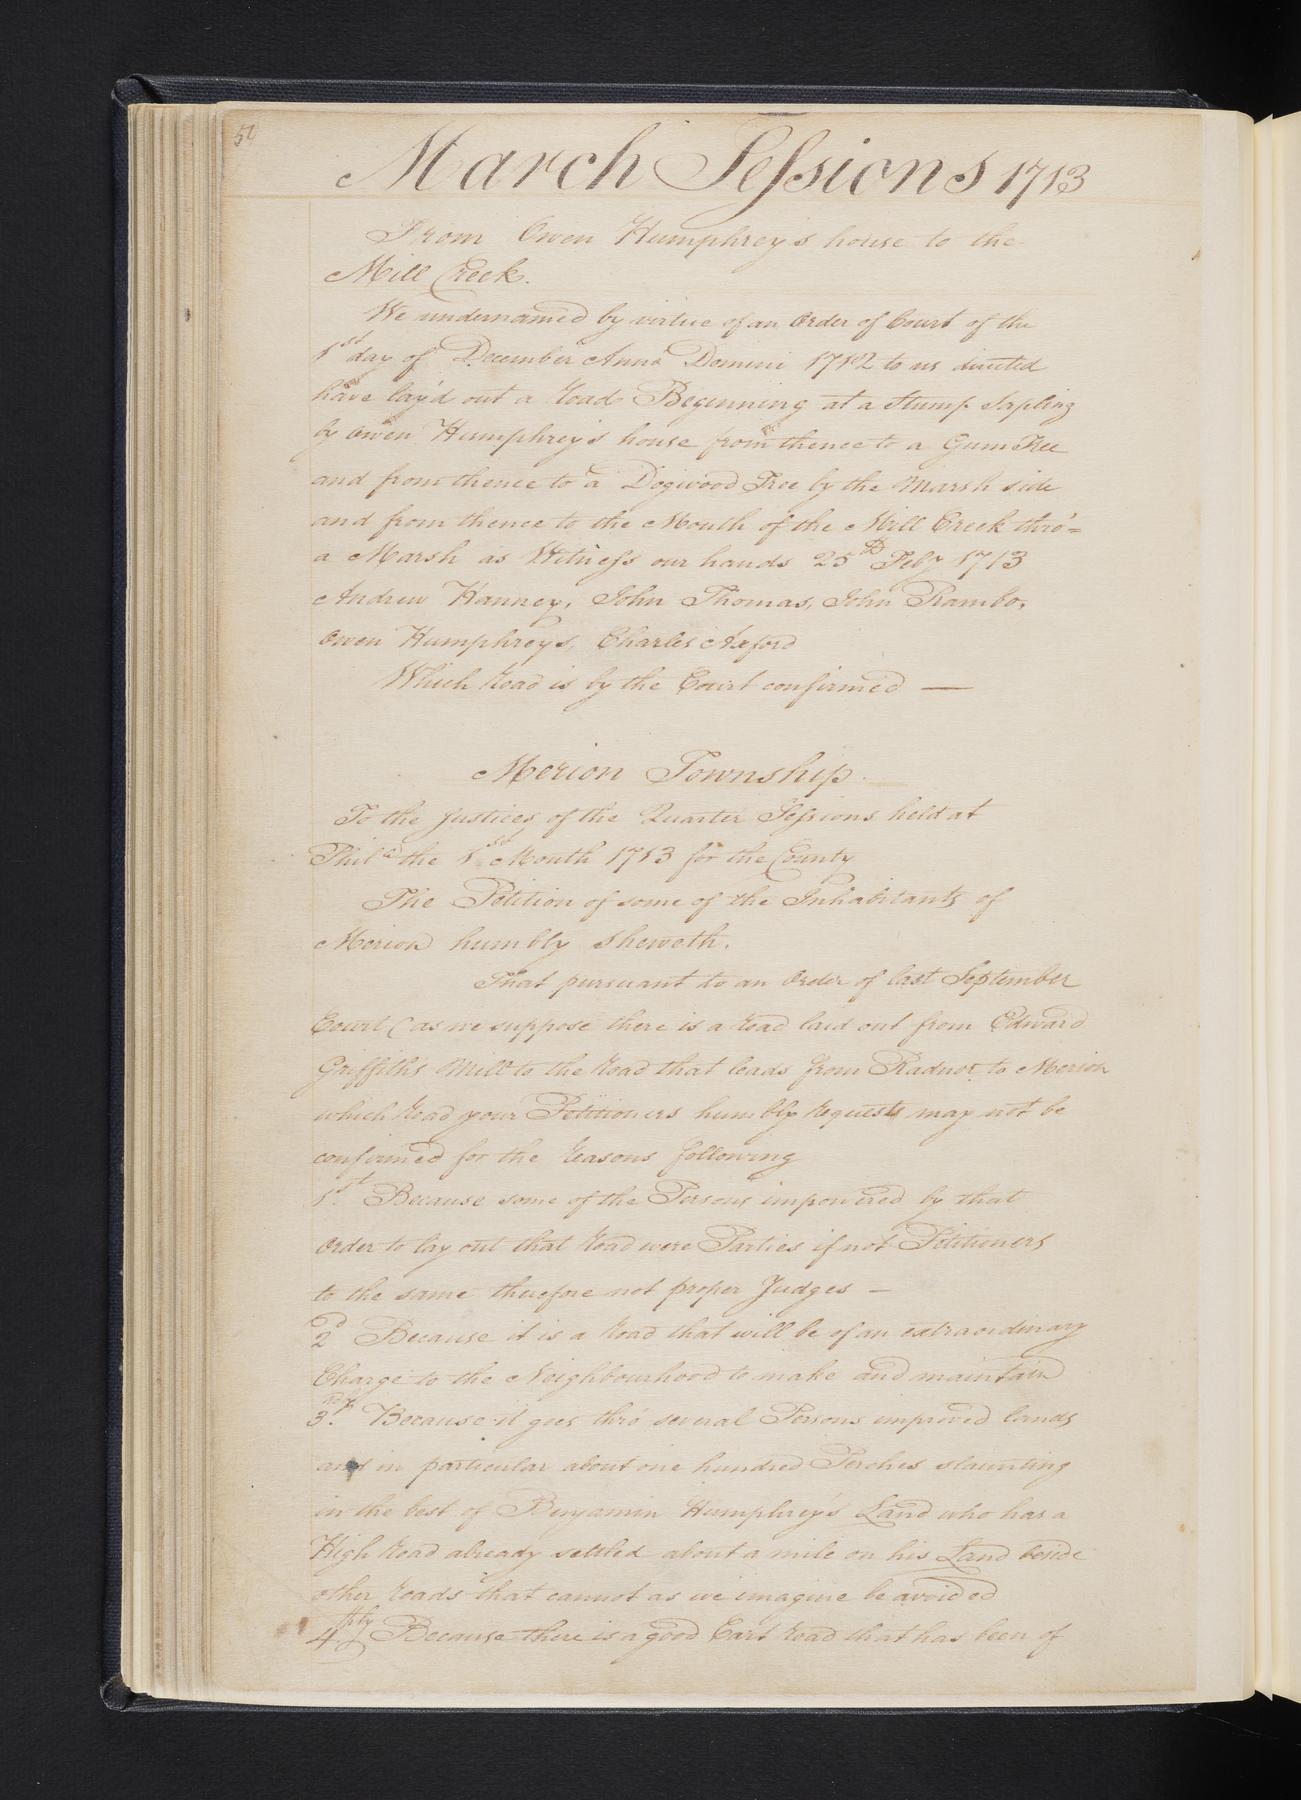 March Sessions 1713
From Owen Humphrey's house to the
Mill Creek.
We undernamed by virtue of an Order of Court of the
1st day of December Anno Domini 1712 to us directed
have lay'd out a Road Beginning at a Stump Sapling
by Owen Humphrey's house from thence to a Gum Tree
and from thence to a Dogwood Tree by the Marsh side
and from thence to the Mouth of the Mill Creek thro'=
a Marsh as Witness our hands 25th Feby 1713
Andrew Kanney, John Thomas, John Rambo,
Owen Humphreys, Charles Axford
Which Road is by the Court confirmed —
Merion Township
To the Justices of the Quarter Sessions held at
Phila the 1st Month 1713 for the County
The Petition of some of the Inhabitants of
Merion humbly sheweth.
That pursuant to an Order of last September
Court (as we suppose there is a Road laid out from Edward
Griffith's Mill to the Road that leads from Radnor to Merion
which Road your Petitioners humbly Requests may not be
confirmed for the Reasons following
1st. Because some of the Persons impowered by that
Order to lay out that Road were Parties if not Petitioners
to the same therefore not proper Judges —
2d Because it is a Road that will be of an extraordinary
Charge to the Neighbourhood to make and maintain
3rdly. Because it goes thro' several Persons improved lands
and in particular about one hundred Perches slaunting
in the best of Benjamin Humphrey's Land who has a
High Road already settled about a mile on his Land beside
other Roads that cannot as we imagine be avoided
4thly Because there is a good Cart Road that has been of